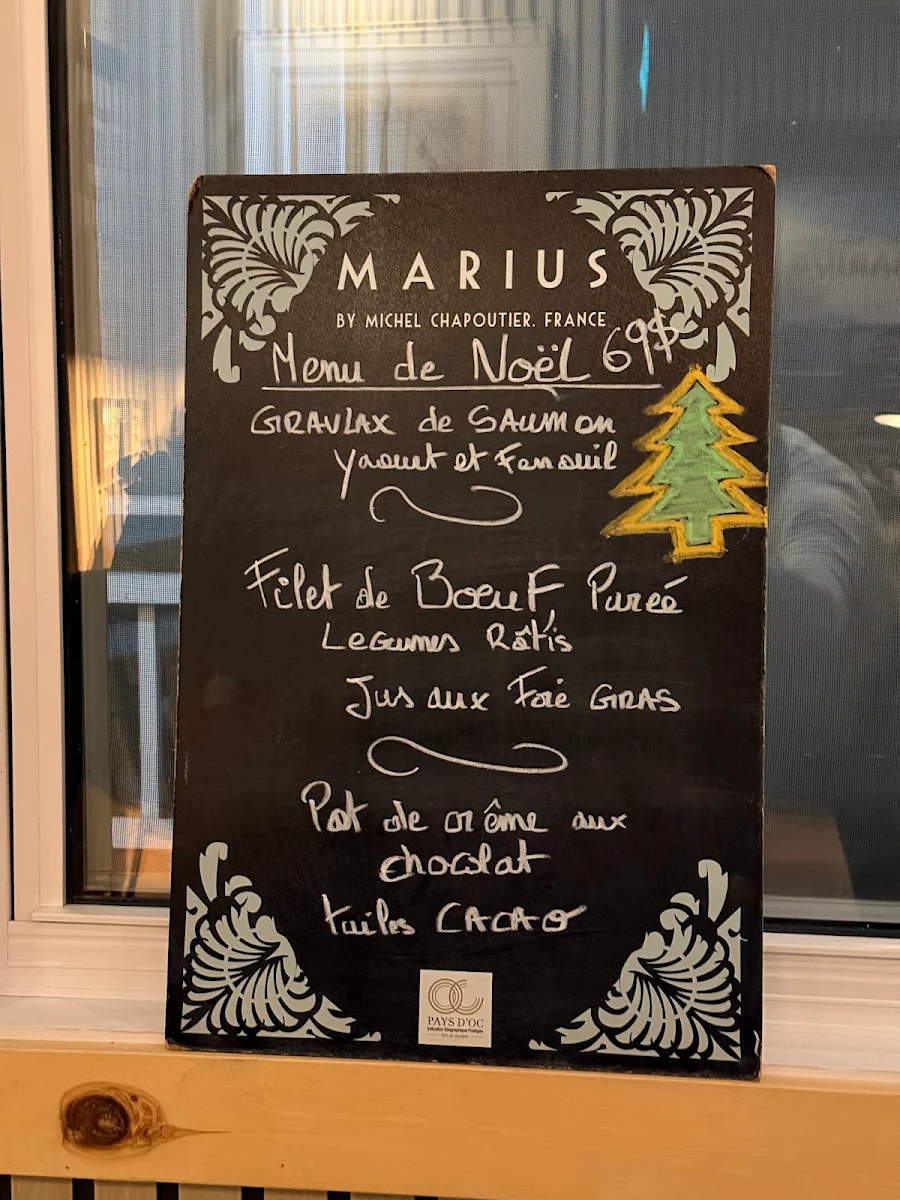 MARIUS
BY MICHEL CHAPOUTIER. FRANCE
Menu de Noël 69$
GRAVLAX de SAUMON
Yaourt et Fenouil
Filet de BoeuF, Pureé
LeGumes Rôtis
Jus aux Foie GRAS
Pot de crême aux
chocolat
tuiles CACAO
OC
PAYS D'OC
Indication Géographique Protégée